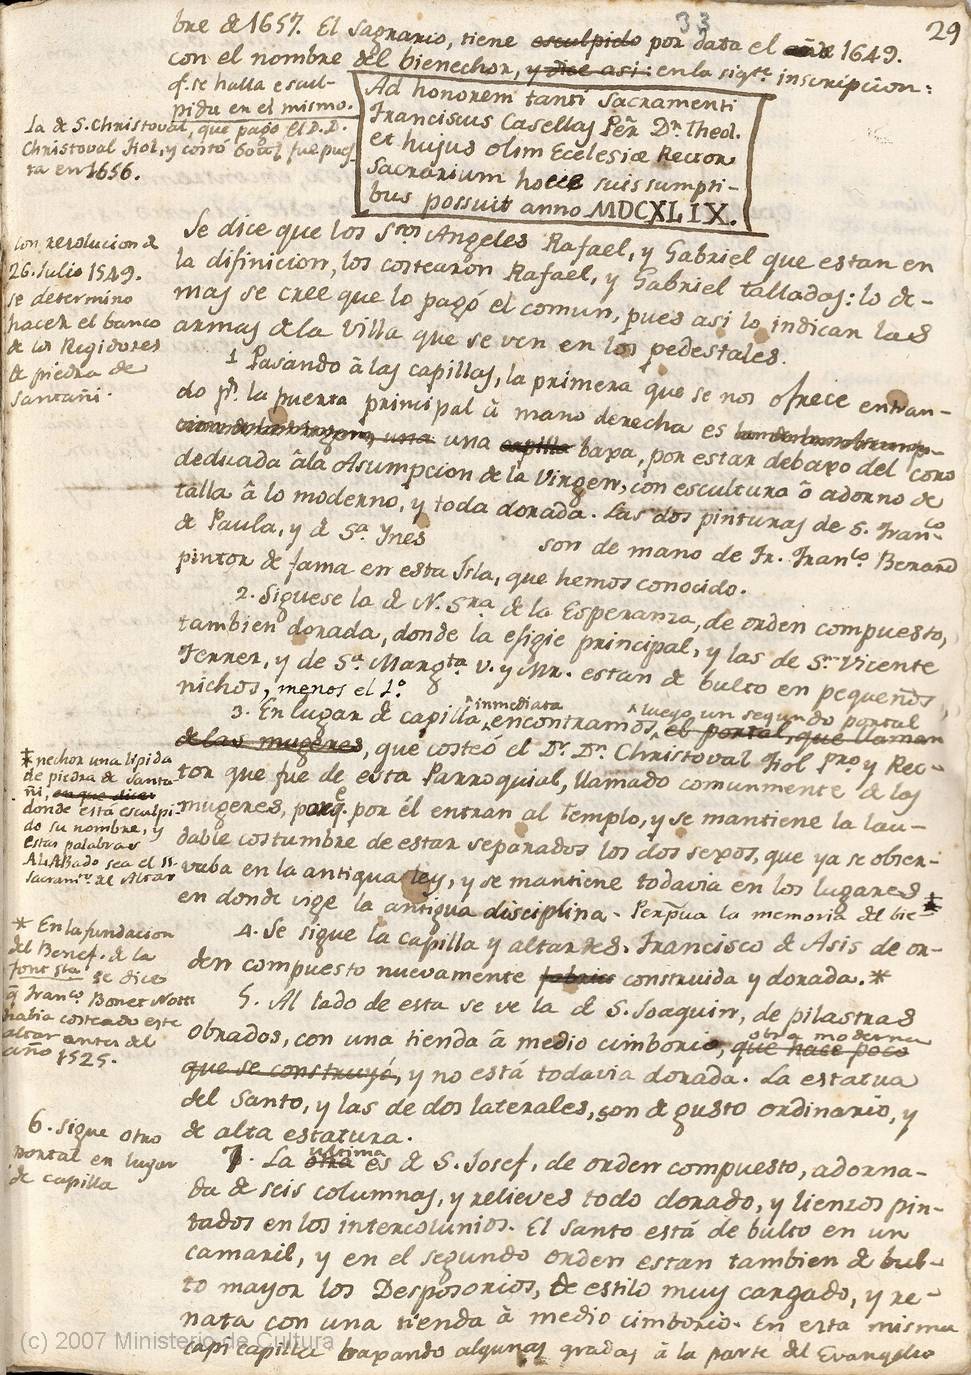 33
29
bre de 1657. El Sagrario, tiene esculpido por data el año 1649.
con el nombre del bienechor, y dice asi: en la sigte. inscripcion:
q. se halla escul-
pida en el mismo.
Ad honorem tanti Sacramenti
Franciscus Casellas Pẽr Dr. Theol.
et hujus olim Ecclesiæ Rector
Sacrarium hocce suis sumpti-
bus possuit anno MDCXLIX.
La de S. Christoval, que pagó el D.D.
Christoval Fiol, y costó 600 fue pues
ta en 1656.
Se dice que los Stos Angeles Rafael, y Gabriel que estan en
la difinicion, los costearon Rafael, y Gabriel Talladas: lo de-
mas se cree que lo pagó el comun, pues asi lo indican las
armas de la Villa que se ven en los pedestales.
con resolucion de
26. Julio 1549.
se determino
hacer el banco
de los Regidores
de piedra de
Santañi.
1 Pasando â las capillas, la primera que se nos ofrece entran-
do pr. la puerta principal â mano derecha es
una capilla baxa, por estar debaxo del coro
dedicada âla Asumpcion de la Virgen, con escultura ô adorno de
talla â lo moderno, y toda dorada. Las dos pinturas de S. Franco
de Paula, y de Sa. Ynes
son de mano de Fr. Franco. Berard
pintor de fama en esta Isla, que hemos conocido.
2. Siguese la de N. Sra de la Esperanza, de orden compuesto,
tambien dorada, donde la efigie principal, y las de Sn. Vicente
Ferrer, y de Sa. Margta v. y Mr. estan de bulto en pequeños
nichos, menos el 1o.
3. En lugar de capilla inmediata encontramos, luego un segundo portal el portal, que llaman
de las mugeres, que costeó el Dr. Dn. Christoval Fiol Pro. y Rec-
tor que fue de esta Parroquial, llamado comunmente de las
mugeres, porq.e por él entran al Templo, y se mantiene la lau-
dable costumbre de estar separados los dos sexos, que ya se obser-
vaba en la antigua ley, y se mantiene todavia en los lugares
en donde vige la antigua disciplina. Perpua la memoria del bie-
nechor una lipida
de piedra de Santa
ñi, en que dicen
donde está esculpi-
do su nombre, y
estas palabras
ALABado sea el SS.
Sacramto. del Altar
4. Se sigue la capilla y altar de S. Francisco de Asis de or-
den compuesto nuevamente fabrica construida y dorada. *
* En la fundacion
del Benef. de la
font sta se dice
q̃ Franco. Bonet Nott
habia costeado este
altar antes del
año 1525.
5. Al lado de esta se ve la de S. Joaquin, de pilastras
obrados, con una tienda â medio cimborio, obra moderna que hace poco
que se construyó, y no está todavia dorada. La estatua
del Santo, y las de dos laterales, son de gusto ordinario, y
de alta estatura.
6. sigue otro
portal en lugar
de capilla
7. La otra ultima es de S. Josef, de orden compuesto, adorna-
da de seis columnas, y relieves todo dorado, y lienzos pin-
tados en los intercolunios. El Santo está de bulto en un
camaril, y en el segundo orden estan tambien de bul-
to mayor los Desposorios, de estilo muy cargado, y re-
nata con una tienda â medio cimborio. En esta misma
capi capilla baxando algunas gradas â la parte del Evangelio
(c) 2007 Ministerio de Cultura